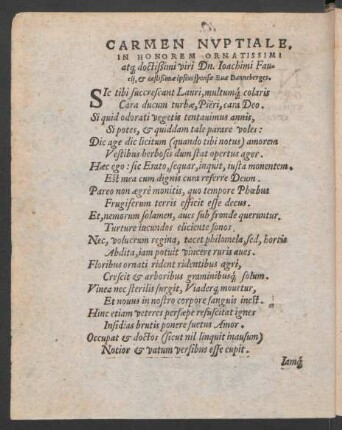 CARMEN NVPTIALE,
IN HONOREM ORNATISSIMI
atq; doctißimi viri Dn. Ioachimi Fau-
cij, & castissimæ ipsius sponsæ Euæ Danneberges.
SIc tibi succrescant Lauri, multumq; colaris
Cara ducum turbæ, Piëri, cara Deo.
Si quid odorati vegetis tentauimus annis,
Si potes, & quiddam tale parare voles:
Dic age dic licitum (quando tibi notus) amorem
Vestibus herbosis dum stat opertus ager.
Hæc ego: sic Erato, sequar, inquit, iusta monentem.
Est mea cum dignis cura referre Deum.
Pareo non ægrè monitis, quo tempore Phœbus
Frugiferum terris efficit esse decus.
Et, nemorum solamen, aues sub fronde queruntur.
Turture iucundos eliciente sonos.
Nec, volucrum regina, tacet philomela, sed, hortis
Abdita, iam potuit vincere ruris aues.
Floribus ornati rident ridentibus agri,
Crescit & arboribus graminibusq; solum.
Vinea nec sterilis surgit, Viaderq; mouetur,
Et nouus in nostro corpore sanguis inest.
Hinc etiam veteres persæpe resuscitat ignes
Insidias brutis ponere suetus Amor.
Occupat & doctos (sicut nil linquit inausum)
Notior & vatum versibus esse cupit.
Iamq;